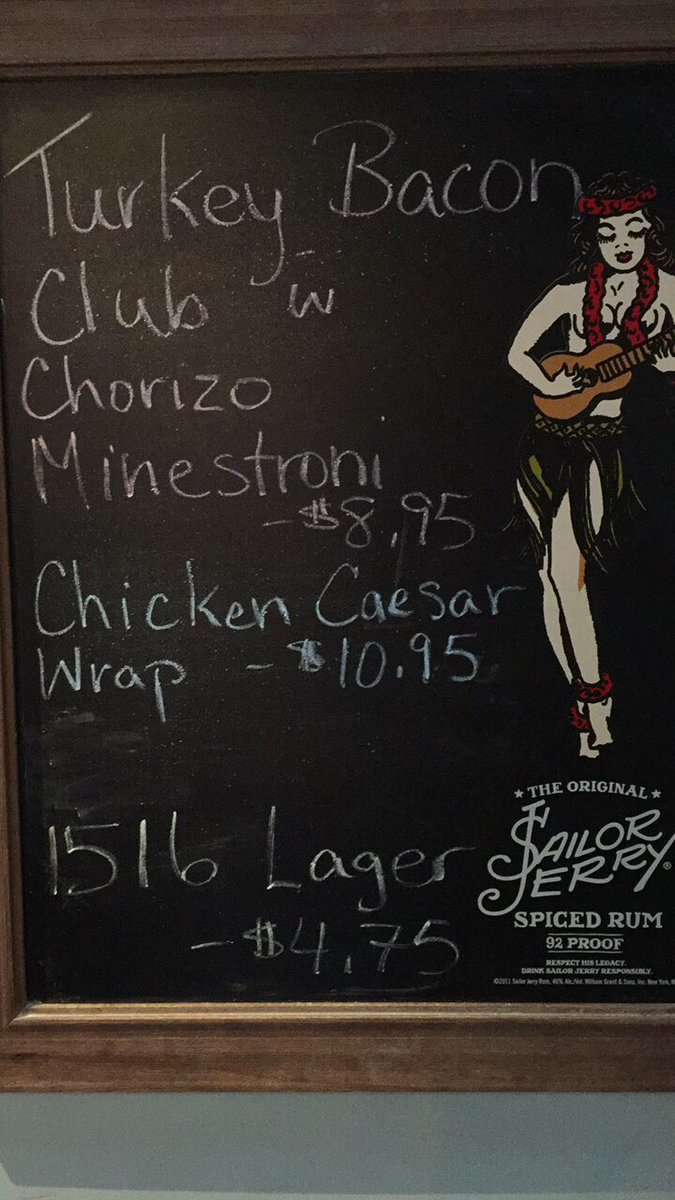 Turkey Bacon
Club w
Chorizo
Minestroni
- $8.95
Chicken Caesar
Wrap - $10.95
1516 Lager
- $4.75
★ THE ORIGINAL ★
SAILOR
JERRY®
SPICED RUM
92 PROOF
RESPECT HIS LEGACY.
DRINK SAILOR JERRY RESPONSIBLY.
©2011 Sailor Jerry Rum, 46% Alc./Vol. William Grant & Sons, Inc. New York, N